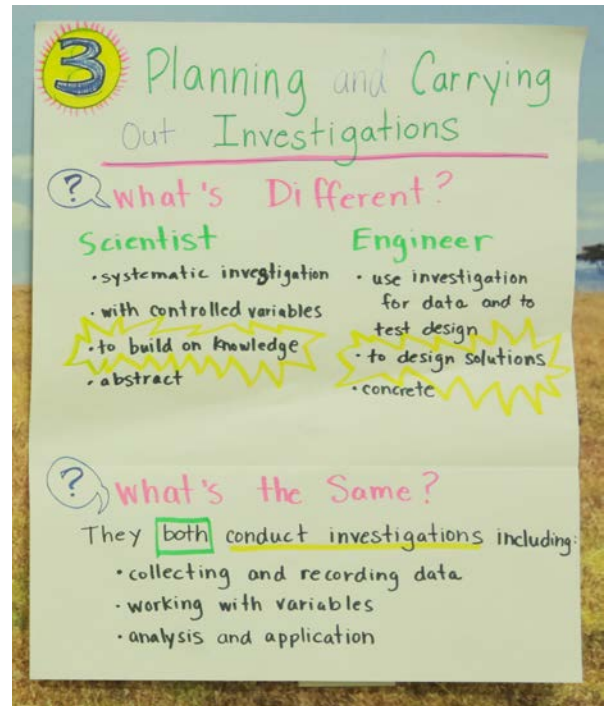 3 Planning and Carrying
Out Investigations
? What's Different?
Scientist
• systematic investigation
• with controlled variables
• to build on knowledge
• abstract
Engineer
• use investigation
for data and to
test design
• to design solutions
• concrete
? What's the Same?
They both conduct investigations including:
• collecting and recording data
• working with variables
• analysis and application